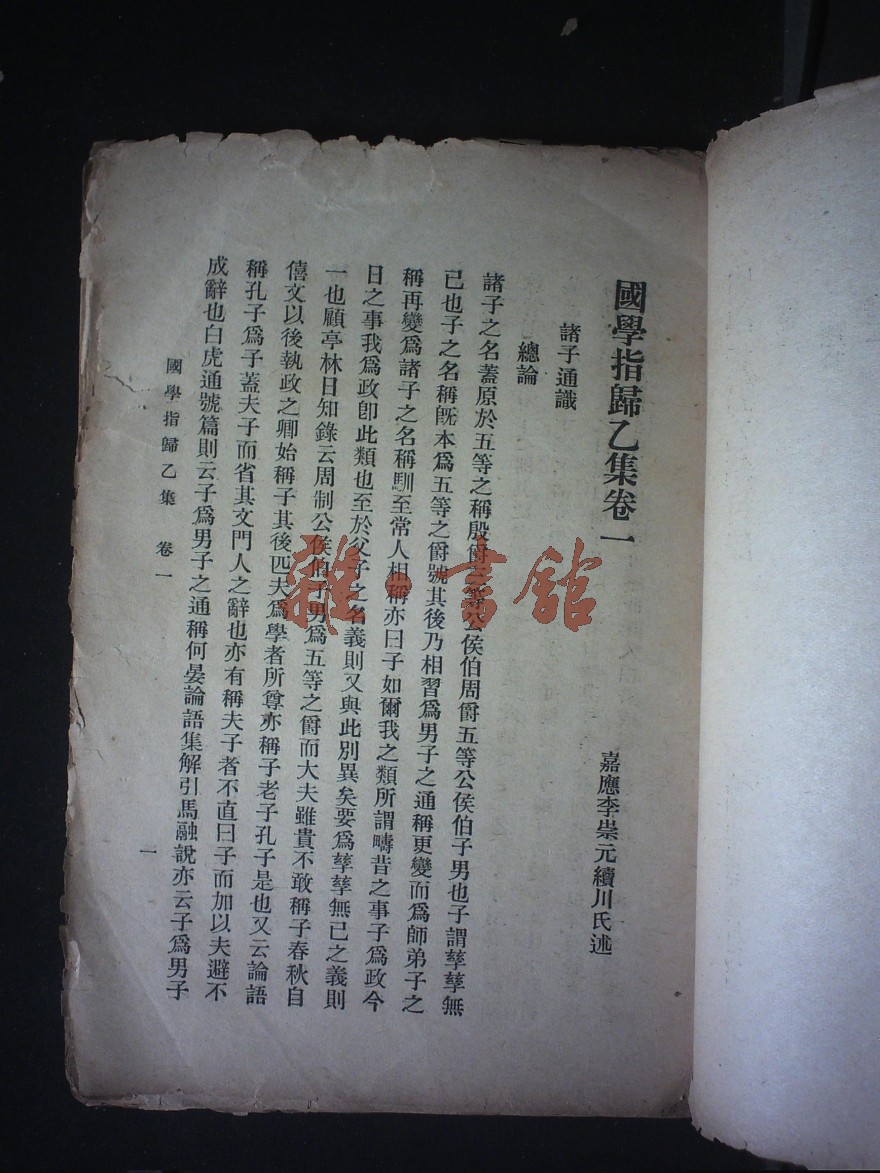 國學指歸乙集卷一
嘉應李崇元續川氏述
諸子通識
總論
諸子之名蓋原於五等之稱殷爵三等公侯伯周爵五等公侯伯子男也子謂孳孳無
已也子之名稱旣本爲五等之爵號其後乃相習爲男子之通稱更變而爲師弟子之
稱再變爲諸子之名稱馴至常人相稱亦曰子如爾我之類所謂疇昔之事子爲政今
日之事我爲政卽此類也至於父子之名義則又與此別異矣要爲孳孳無已之義則
一也顧亭林日知錄云周制公侯伯子男爲五等之爵而大夫雖貴不敢稱子春秋自
僖文以後執政之卿始稱子其後匹夫爲學者所尊亦稱子老子孔子是也又云論語
稱孔子爲子蓋夫子而省其文門人之辭也亦有稱夫子者不直曰子而加以夫避不
成辭也白虎通號篇則云子爲男子之通稱何晏論語集解引馬融說亦云子爲男子
國學指歸乙集 卷一
一
雜·書館